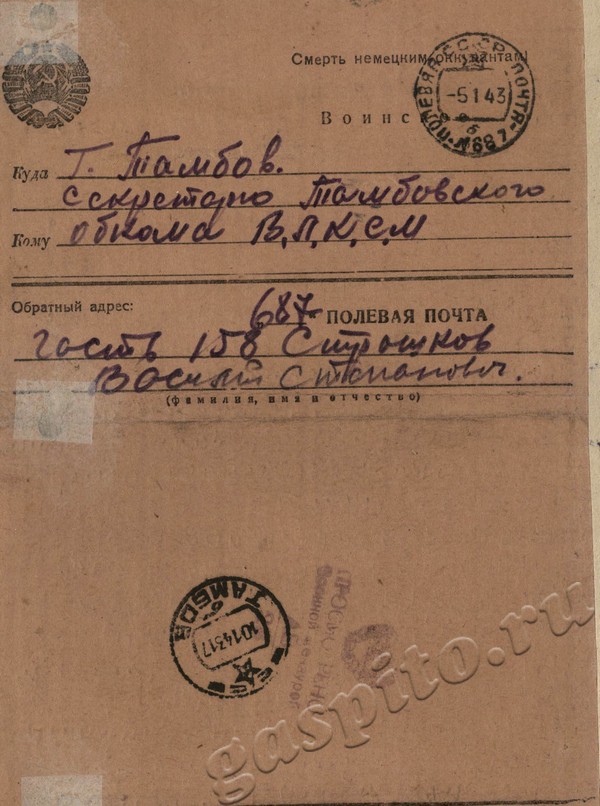 Смерть немецким оккупантам!
ПОЛЕВАЯ ПОЧТА
-5143
Воинс
Куда Г. Тамбов.
Секретарю Тамбовского
Кому обкома В.Л.К.С.М
Обратный адрес: 687 ПОЛЕВАЯ ПОЧТА
часть 158 Строшков
Василий Степанович.
(фамилия, имя и отчество)
ТАМБОВ
1014317
ПРОСМОТРЕНО
Военной
gaspito.ru